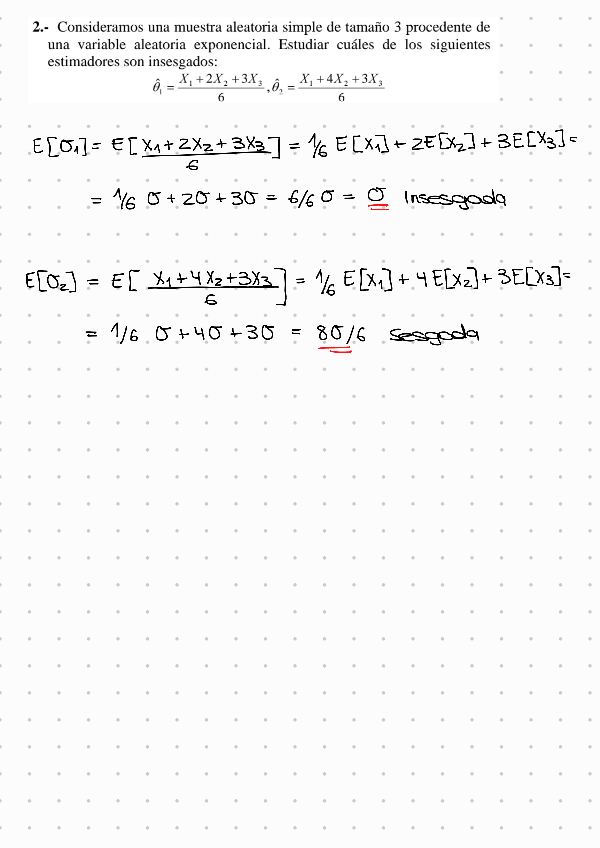 2.- Consideramos una muestra aleatoria simple de tamaño 3 procedente de
una variable aleatoria exponencial. Estudiar cuáles de los siguientes
estimadores son insesgados:
θ̂₁ = (X₁ + 2X₂ + 3X₃)/6, θ̂₂ = (X₁ + 4X₂ + 3X₃)/6
E[σ₁] = E[(X₁ + 2X₂ + 3X₃)/6] = 1/6 E[X₁] + 2E[X₂] + 3E[X₃] =
= 1/6 σ + 2σ + 3σ = 6/6 σ = σ Insesgada
E[σ₂] = E[(X₁ + 4X₂ + 3X₃)/6] = 1/6 E[X₁] + 4E[X₂] + 3E[X₃] =
= 1/6 σ + 4σ + 3σ = 8σ/6 sesgada